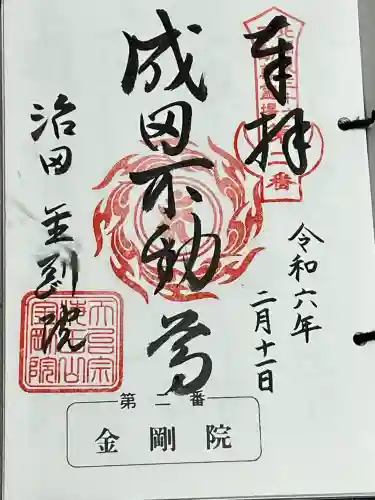 奉拝
令和六年
二月十一日
成田不動尊
治田
金剛院
第二番
金剛院